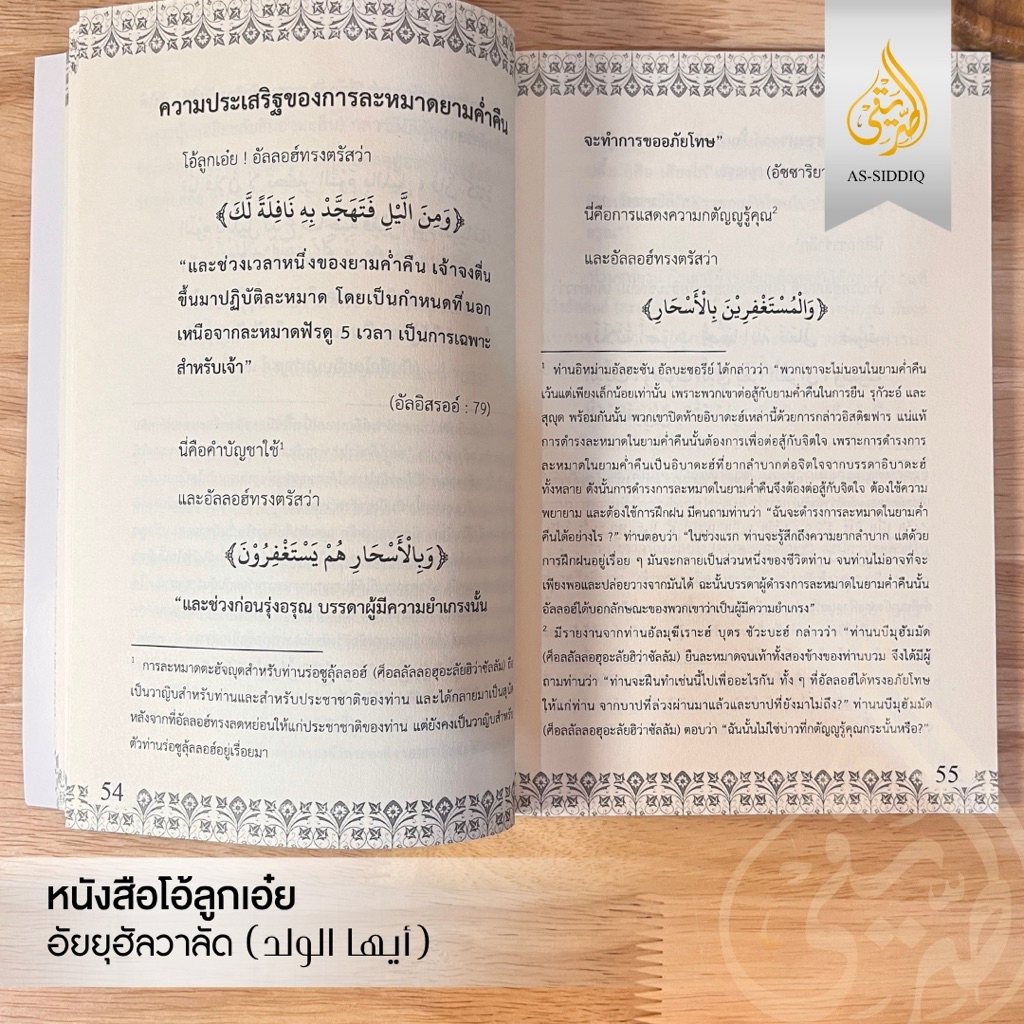 ความประเสริฐของการละหมาดยามค่ำคืน
โอ้ลูกเอ๋ย ! อัลลอฮ์ทรงตรัสว่า
﴿وَمِنَ الَّيْلِ فَتَهَجَّدْ بِهِ نَافِلَةً لَّكَ﴾
“และช่วงเวลาหนึ่งของยามค่ำคืน เจ้าจงตื่น
ขึ้นมาปฏิบัติละหมาด โดยเป็นกำหนดที่นอก
เหนือจากละหมาดฟัรดู 5 เวลา เป็นการเฉพาะ
สำหรับเจ้า”
(อัลอิสรออ์ : 79)
นี่คือคำบัญชาใช้¹
และอัลลอฮ์ทรงตรัสว่า
﴿وَبِالْأَسْحَارِ هُمْ يَسْتَغْفِرُوْنَ﴾
“และช่วงก่อนรุ่งอรุณ บรรดาผู้มีความยำเกรงนั้น
¹ การละหมาดตะฮัจญุดสำหรับท่านร่อซูลุ้ลลอฮ์ (ศ็อลลัลลอฮุอะลัยฮิว่าซัลลัม) ถือ
เป็นวาญิบสำหรับท่านและสำหรับประชาชาติของท่าน และได้กลายมาเป็นสุนัต
หลังจากที่อัลลอฮ์ทรงลดหย่อนให้แก่ประชาชาติของท่าน แต่ยังคงเป็นวาญิบสำหรับ
ตัวท่านร่อซูลุ้ลลอฮ์อยู่เรื่อยมา
54
จะทำการขออภัยโทษ”
(อัซซาริยา
นี่คือการแสดงความกตัญญูรู้คุณ²
และอัลลอฮ์ทรงตรัสว่า
﴿وَالْمُسْتَغْفِرِيْنَ بِالْأَسْحَارِ﴾
¹ ท่านอิหม่ามอัลฮะซัน อัลบะซอรีย์ ได้กล่าวว่า “พวกเขาจะไม่นอนในยามค่ำคืน
เว้นแต่เพียงเล็กน้อยเท่านั้น เพราะพวกเขาต่อสู้กับยามค่ำคืนในการยืน รุกัวะอ์ และ
สุญูด พร้อมกันนั้น พวกเขาปิดท้ายอิบาดะฮ์เหล่านี้ด้วยการกล่าวอิสติฆฟาร แน่แท้
การดำรงละหมาดในยามค่ำคืนนั้นต้องการเพื่อต่อสู้กับจิตใจ เพราะการดำรงการ
ละหมาดในยามค่ำคืนเป็นอิบาดะฮ์ที่ยากลำบากต่อจิตใจจากบรรดาอิบาดะฮ์
ทั้งหลาย ดังนั้นการดำรงการละหมาดในยามค่ำคืนจึงต้องต่อสู้กับจิตใจ ต้องใช้ความ
พยายาม และต้องใช้การฝึกฝน มีคนถามท่านว่า “ฉันจะดำรงการละหมาดในยามค่ำ
คืนได้อย่างไร ?” ท่านตอบว่า “ในช่วงแรก ท่านจะรู้สึกถึงความยากลำบาก แต่ด้วย
การฝึกฝนอยู่เรื่อย ๆ มันจะกลายเป็นส่วนหนึ่งของชีวิตท่าน จนท่านไม่อาจที่จะ
เพียงพอและปล่อยวางจากมันได้ ฉะนั้นบรรดาผู้ดำรงการละหมาดในยามค่ำคืนนั้น
อัลลอฮ์ได้บอกลักษณะของพวกเขาว่าเป็นผู้มีความยำเกรง”
² มีรายงานจากท่านอัลมุฆีเราะฮ์ บุตร ชัวะบะฮ์ กล่าวว่า “ท่านนบีมุฮัมมัด
(ศ็อลลัลลอฮุอะลัยฮิว่าซัลลัม) ยืนละหมาดจนเท้าทั้งสองข้างของท่านบวม จึงได้มีผู้
ถามท่านว่า “ท่านจะฝืนทำเช่นนี้ไปเพื่ออะไรกัน ทั้ง ๆ ที่อัลลอฮ์ได้ทรงอภัยโทษ
ให้แก่ท่าน จากบาปที่ล่วงผ่านมาแล้วและบาปที่ยังมาไม่ถึง?” ท่านนบีมุฮัมมัด
(ศ็อลลัลลอฮุอะลัยฮิว่าซัลลัม) ตอบว่า “ฉันนั้นไม่ใช่บ่าวที่กตัญญูรู้คุณกระนั้นหรือ?”
55
AS-SIDDIQ
หนังสือโอ้ลูกเอ๋ย
อัยยุฮัลวาลัด (أيها الولد)